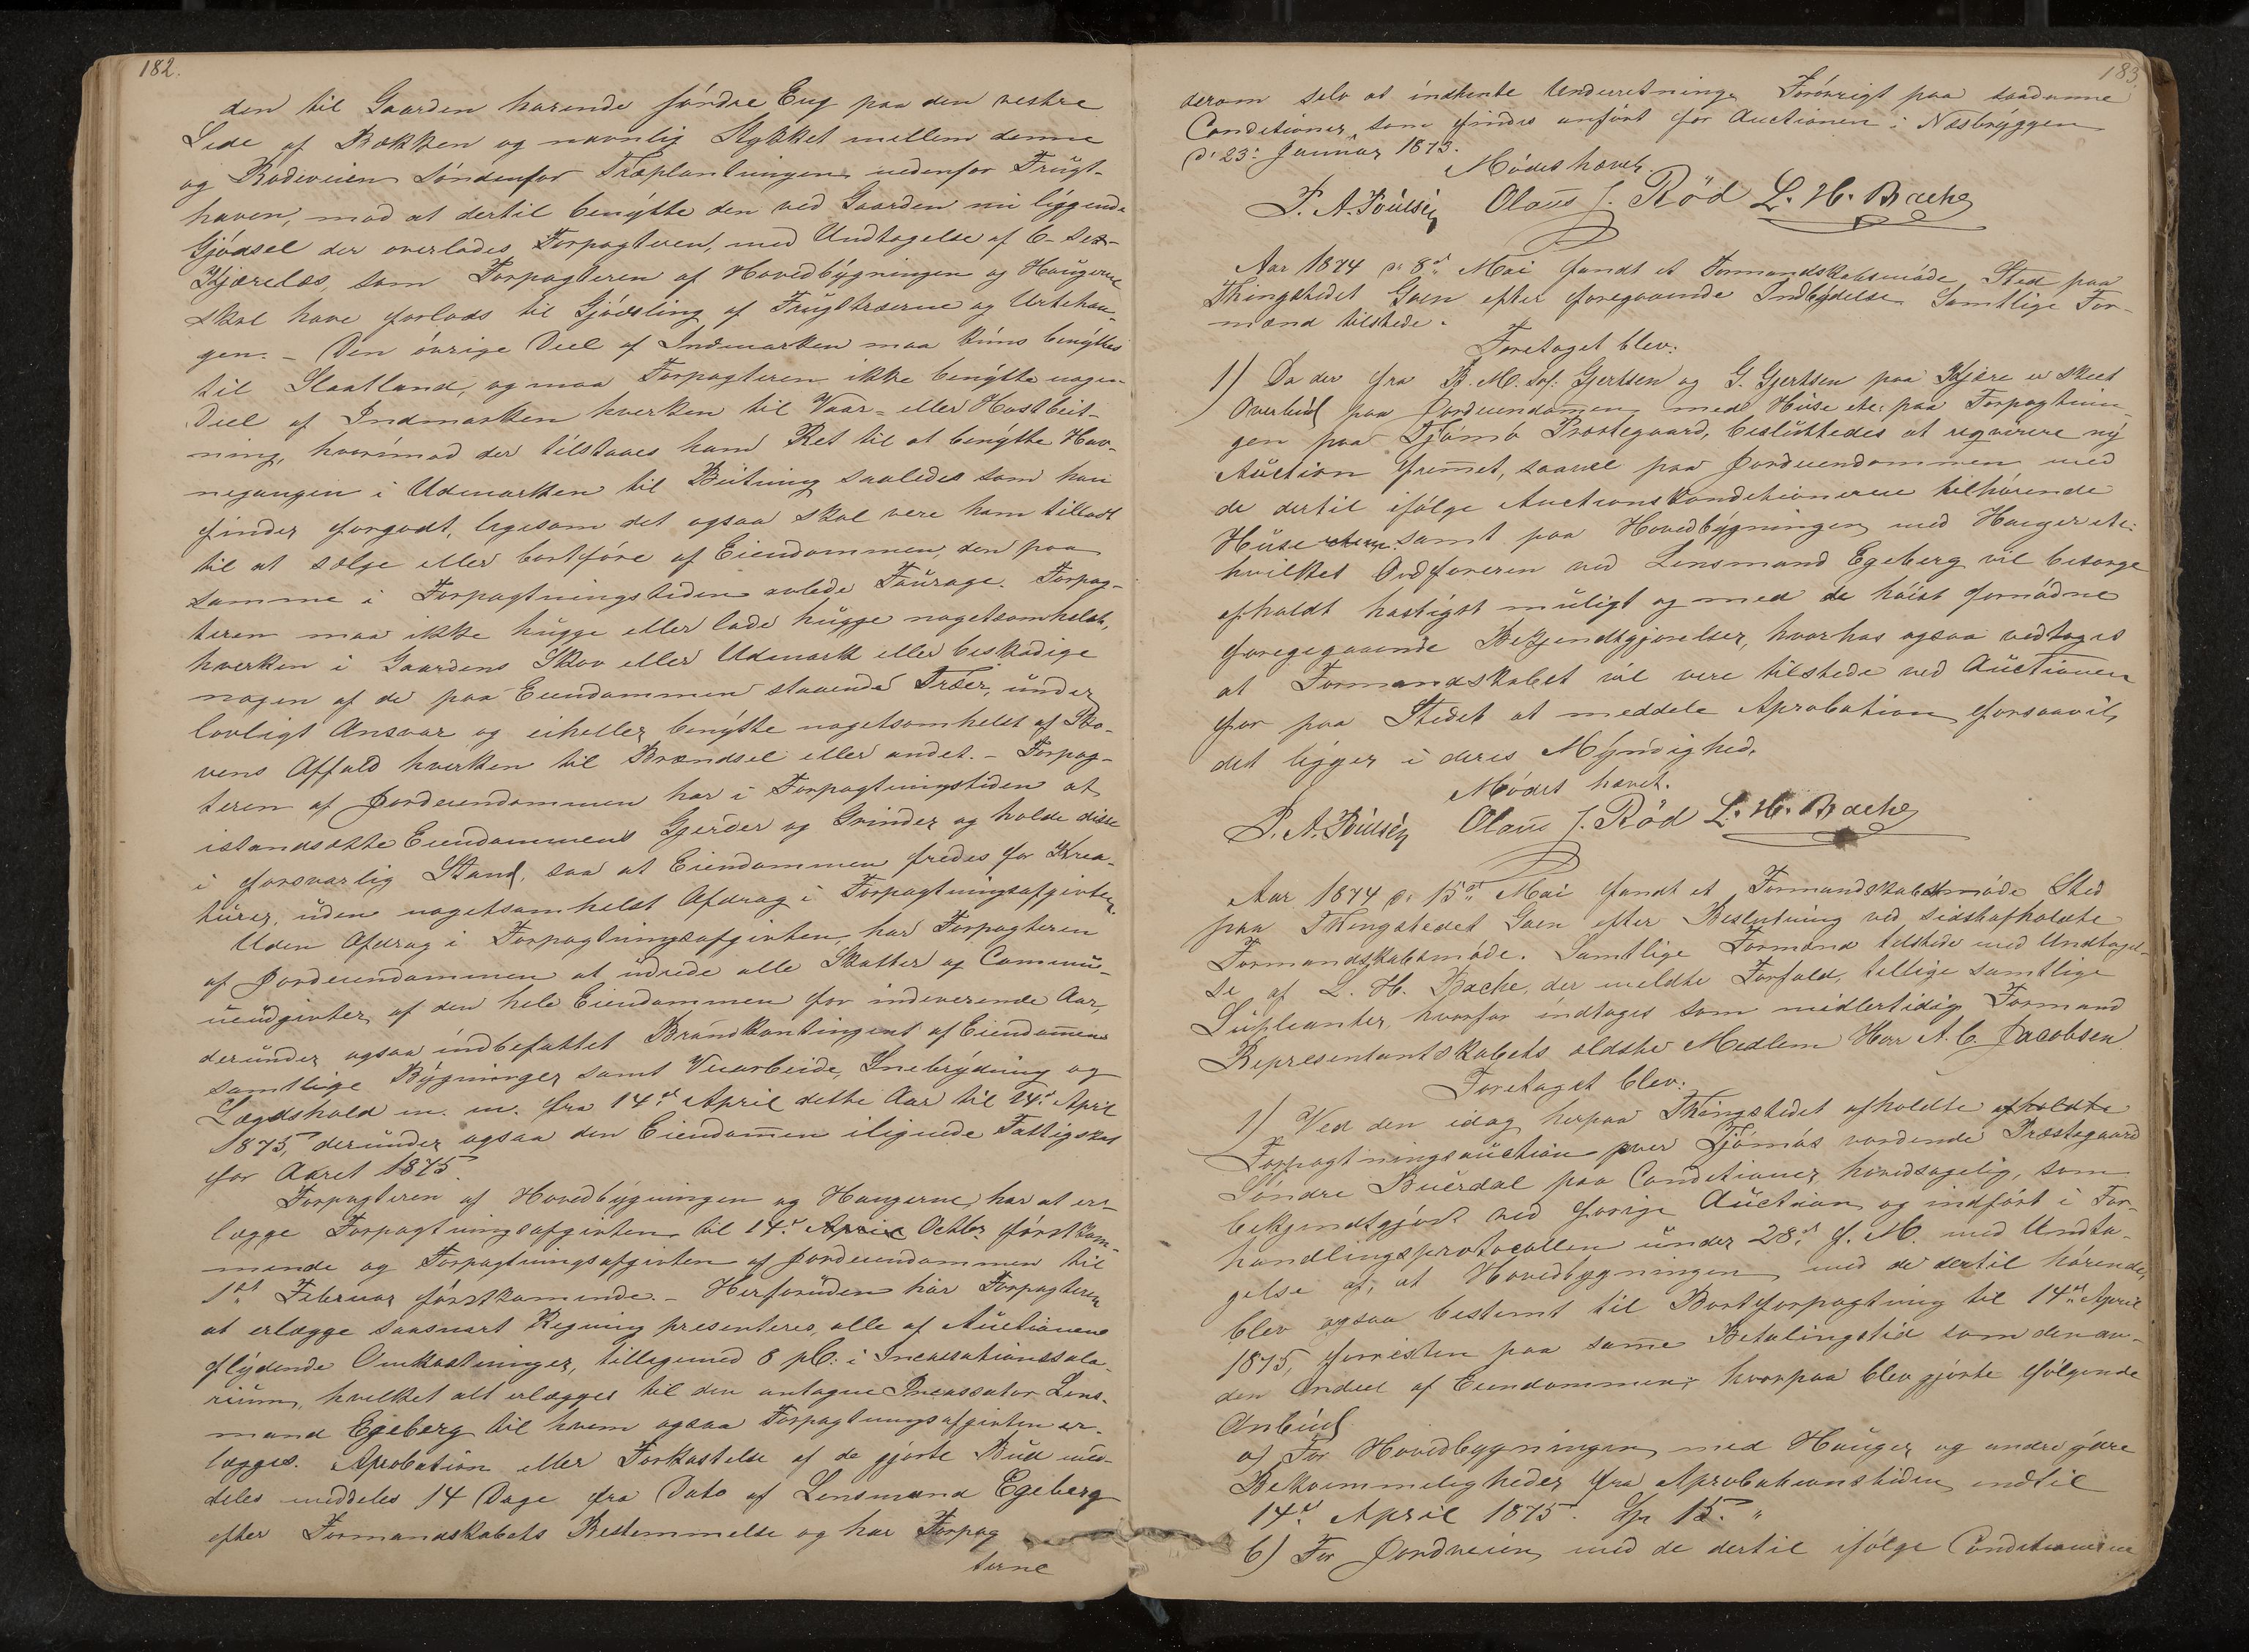 182.
den til Gaarden hørende søndre Eng paa den vestre
Side af Bækken og navnlig Stykket mellem denne
og Rodeveien søndenfor Træplantningen nedenfor Frugt-
haven, mod at dertil benytte den ved Gaarden nu liggende
Gjødsel der overlades Forpagteren, med Undtagelse af 6 – sex –
Kjærelæs, som Forpagteren af Hovedbygningen og Haugerne
skal have forlods til Gjødsling af Frugttræerne og Urtehau-
gen. – Den øvrige Deel af Indmarken maa kuns benyttes
til Slaatland, og maa Forpagteren ikke benytte nogen
Deel af Indmarken hverken til Vaar- eller Høstbeit-
ning, hvorimod der tilstaaes ham Ret til at benytte Hav-
negangen i Udmarken til Beitning saaledes som han
finder forgodt, ligesom det ogsaa skal være ham tilladt
til at sælge eller bortføre af Eiendommen, den paa
samme i Forpagtningstiden avlede Fourage. Forpag-
teren maa ikke hugge eller lade hugge nogetsomhelst,
hverken i Gaardens Skov eller Udmark eller beskadige
nogen af de paa Eiendommen staaende Træer, under
lovligt Ansvar og eiheller benytte nogetsomhelst af Sko-
vens Affald hverken til Brændsel eller andet. – Forpag-
teren af Jordeiendommen har i Forpagtningstiden at
istandsætte Eiendommens Gjerder og Grinder og holde disse
i forsvarlig Stand, saa at Eiendommen fredes for Krea-
turer, uden nogetsomhelst Afdrag i Forpagtningsafgivten.
Uden Afdrag i Forpagtningsafgivten, har Forpagteren
af Jordeiendommen at udrede alle Skatter og Commu-
neudgivter af den hele Eiendommen for indeværende Aar,
derunder ogsaa indbefattet Brandkontingent af Eiendom̅ens
samtlige Bygninger samt Veiarbeide, Snebrydning og
Lægdshold m. m. fra 14.d April dette Aar til 14.d April
1875, derunder ogsaa den Eiendom̅en ilignede Fattigskat
for Aaret 1875.
Forpagteren af Hovedbygningen og Haugerne, har at er-
lægge Forpagtningsafgivten til 14.d April Octbr førstkom-
mende og Forpagtningsafgivten af Jordeiendommen til
1st Februar førstkom̅ende. – Herforuden har Forpagteren
at erlægge saasnart Regning presenteres, alle af Auctionen
flydende Omkostninger, tilligemed 8 pC. i Incassationssala-
rium, hvilket alt erlægges til den antagne Incassator Lens-
mand Egeberg til hvem ogsaa Forpagtningsafgivten er-
lægges. Aprobation eller Forkastelse af de gjorte Bud med-
deles meddeles 14 Dage fra Dato af Lensmand Egeberg
efter Formandskabets Bestemmelse og har Forpag
terne
183.
derom selv at indhente Underretning. Forøvrigt paa saadanne
Conditioner, som findes anført for Auctionen i Næsbryggen
d. 23. Januar 1873.
Mødet hævet.
P. A. Poulsen Olaus J. Rød L. H. Bache
Aar 1874 d. 8d Mai fandt et Formandskabsmøde Sted paa
Thingstedet Goen efter foregaaende Indbydelse. Samtlige For-
mænd tilstede.
Foretaget blev:
1) Da der fra B. M. Sof. Gjertsen og G. Gjertsen paa Kjære er skeet
Overbud paa Jordeiendom̅en med Huse etc. paa Forpagtnin-
gen paa Tjømø Præstegaard, besluttedes at reqvirere ny
Auction frem̅et, saavel paa Jordeiendommen med
de dertil ifølge Auctionskonditionerne tilhørende
Huse samt paa Hovedbygningen med Hauger etc.
hvilket Ordføreren ved Lensmand Egeberg vil besørge
afholdt hastigst muligt og med de høist fornødne
foregegaaende Bekjendtgjørelser, hvorhos ogsaa vedtoges
at Formandskabet vil være tilstede ved Auctionen
for paa Stedet at meddele Aprobation forsaavidt
det ligger i deres Myndighed.
Mødet hævet.
P. A. Poulsen Olaus J. Rød L. H. Bache
Aar 1874 d. 15d Mai fandt et Formandskabsmøde Sted
paa Thingstedet Goen efter Beslutning ved sidstafholdte
Formandskabsmøde. Samtlige Formænd tilstede med Undtagel-
se af L. H. Bache, der meldte Forfald, tillige samtlige
Supleanter, hvorfor indtoges som midlertidig Formand
Representantskabets ældste Medlem Herr A. C. Jacobsen.
Foretaget blev:
1) Ved den idag herpaa Thingstedet afholdte afholdte
Forpagtningsauction over Tjømøs vordende Præstegaard
Søndre Buerdal paa Conditioner, hovedsagelig, som
bekjendtgjort ved forrige Auction og indført i For-
handlingsprotocollen under 28.d f. M. med Undta-
gelse af, at Hovedbygningen med de dertil hørende,
blev ogsaa bestemt til Bortforpagtning til 14.d April
1875, forresten paa sam̅e Betalingstid som den an-
den Andeel af Eiendommen, hvorpaa blev gjorte følgende
Anbud
a) For Hovedbygningen med Hauger og andre ydre
Bekvemmeligheder fra Aprobationstiden indtil
14.d April 1875. Sp 15. "
b) For Jordveien, med de dertil ifølge Conditionerne